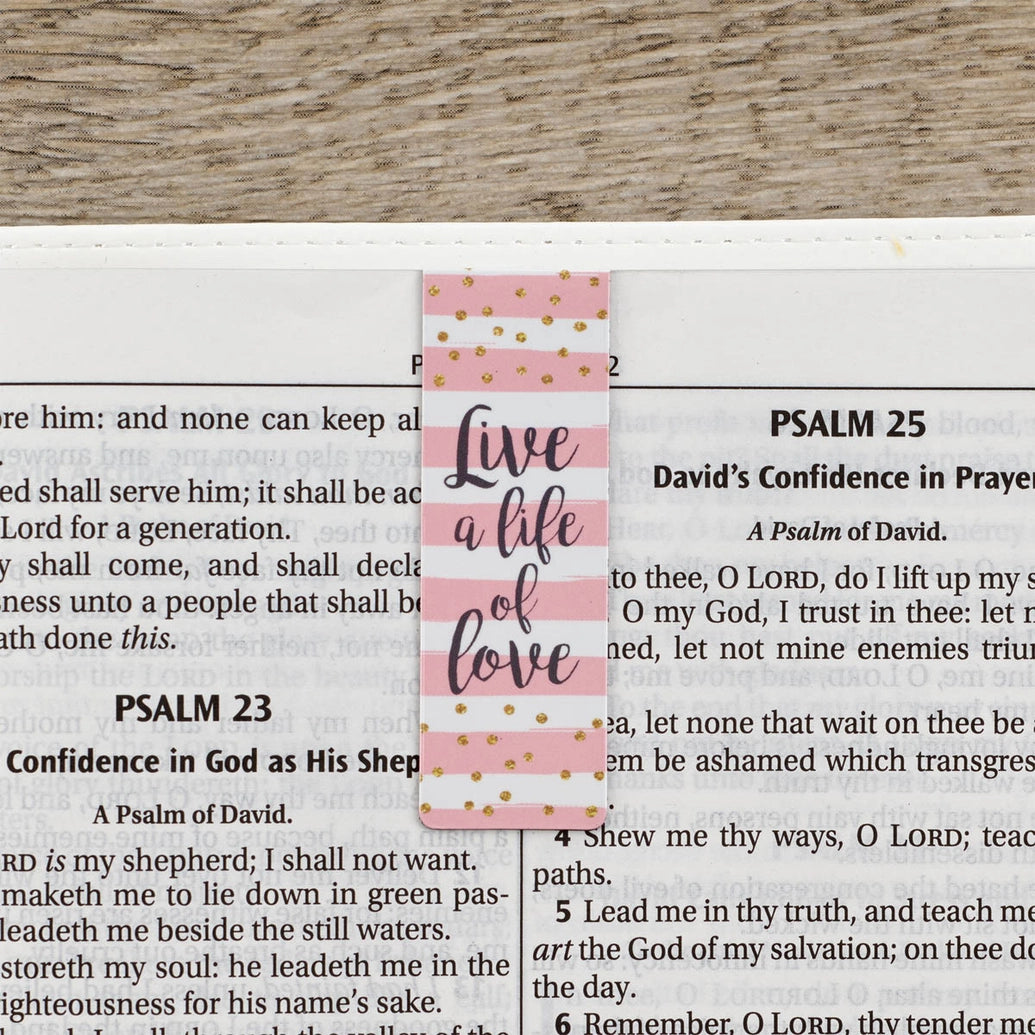 P
2
ore him: and none can keep al
ed shall serve him; it shall be ac
Lord for a generation.
y shall come, and shall decla
sness unto a people that shall be
ath done this.
PSALM 23
Confidence in God as His Shep
A Psalm of David.
RD is my shepherd; I shall not want.
maketh me to lie down in green pas-
leadeth me beside the still waters.
storeth my soul: he leadeth me in the
ighteousness for his name's sake.
Live
a life
of
love
PSALM 25
David's Confidence in Prayer
A Psalm of David.
to thee, O LORD, do I lift up my s
O my God, I trust in thee: let n
med, let not mine enemies trium
ea, let none that wait on thee be a
em be ashamed which transgress
4 Shew me thy ways, O LORD; teac
paths.
5 Lead me in thy truth, and teach me
art the God of my salvation; on thee do
the day.
6 Remember, O LORD, thy tender me